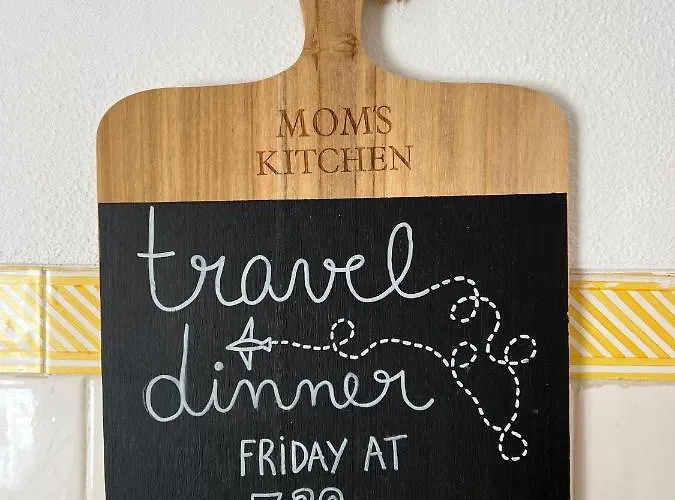 MOM'S
KITCHEN
travel
dinner
FRiDAY AT